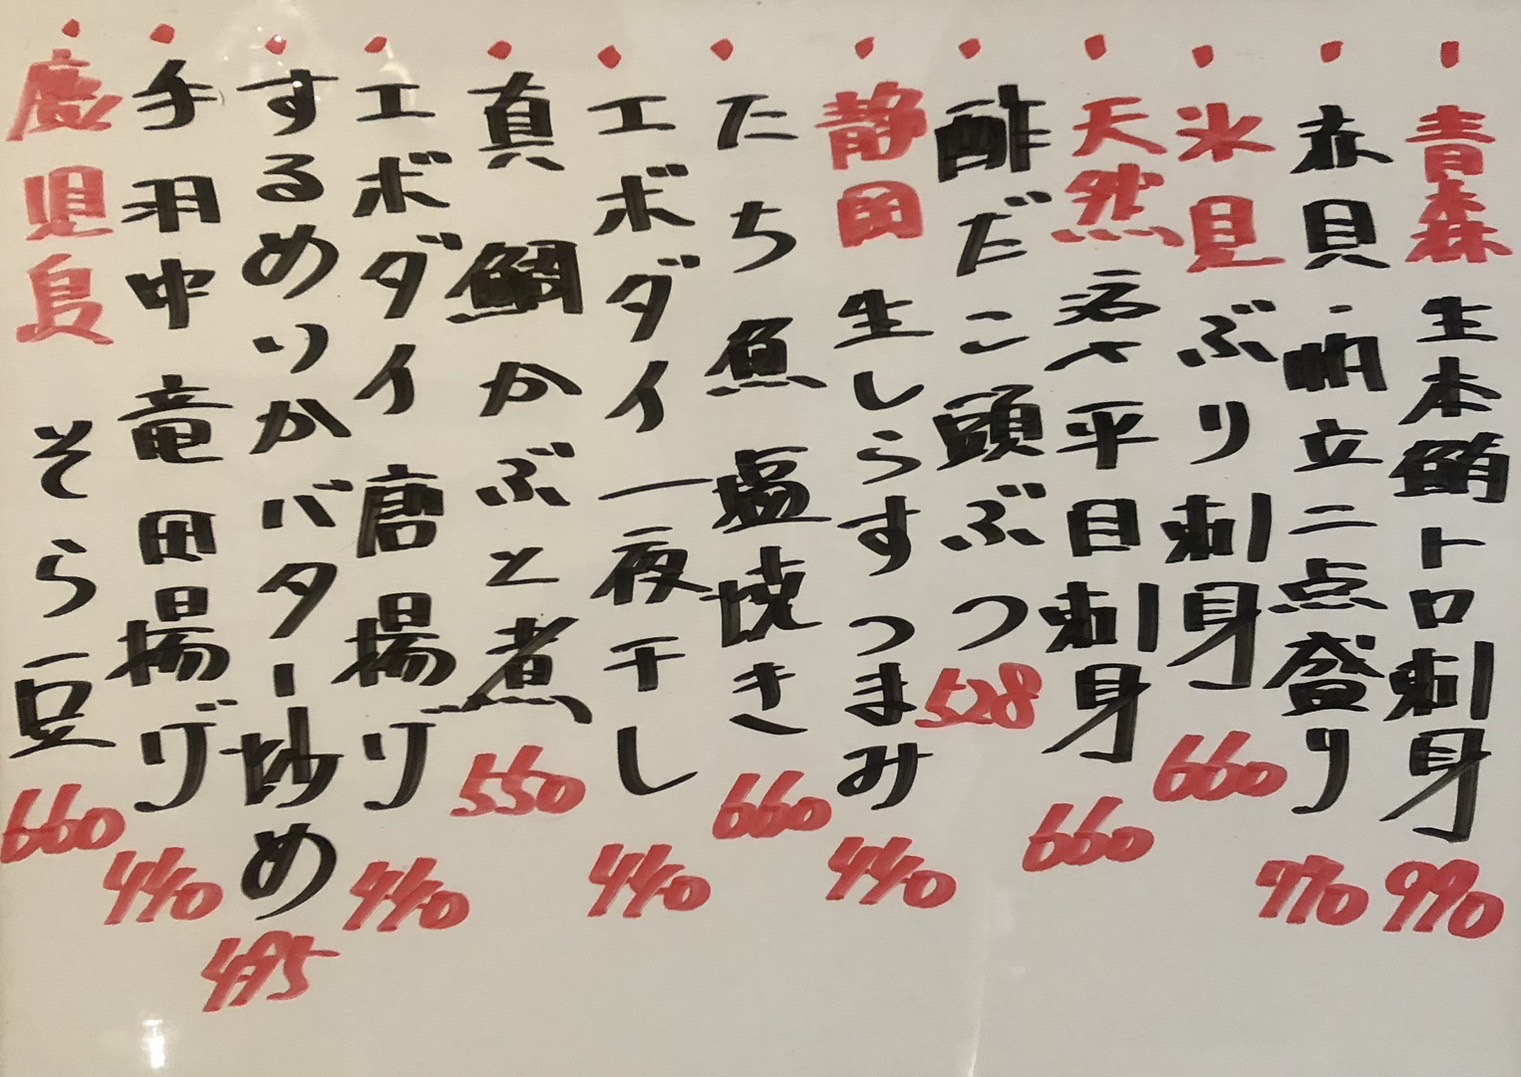 青森 生本鮪トロ刺身 990
赤貝・帆立二点盛り 770
氷見 ぶり刺身 660
天然 活〆平目刺身 660
酢だこ頭ぶつ 528
静岡 生しらすつまみ 440
たち魚 塩焼き 660
エボダイ 一夜干し 440
真鯛かぶと煮 550
エボダイ 唐揚げ 440
するめいかバター炒め 495
手羽中 竜田揚げ 440
鹿児島 そら豆 660